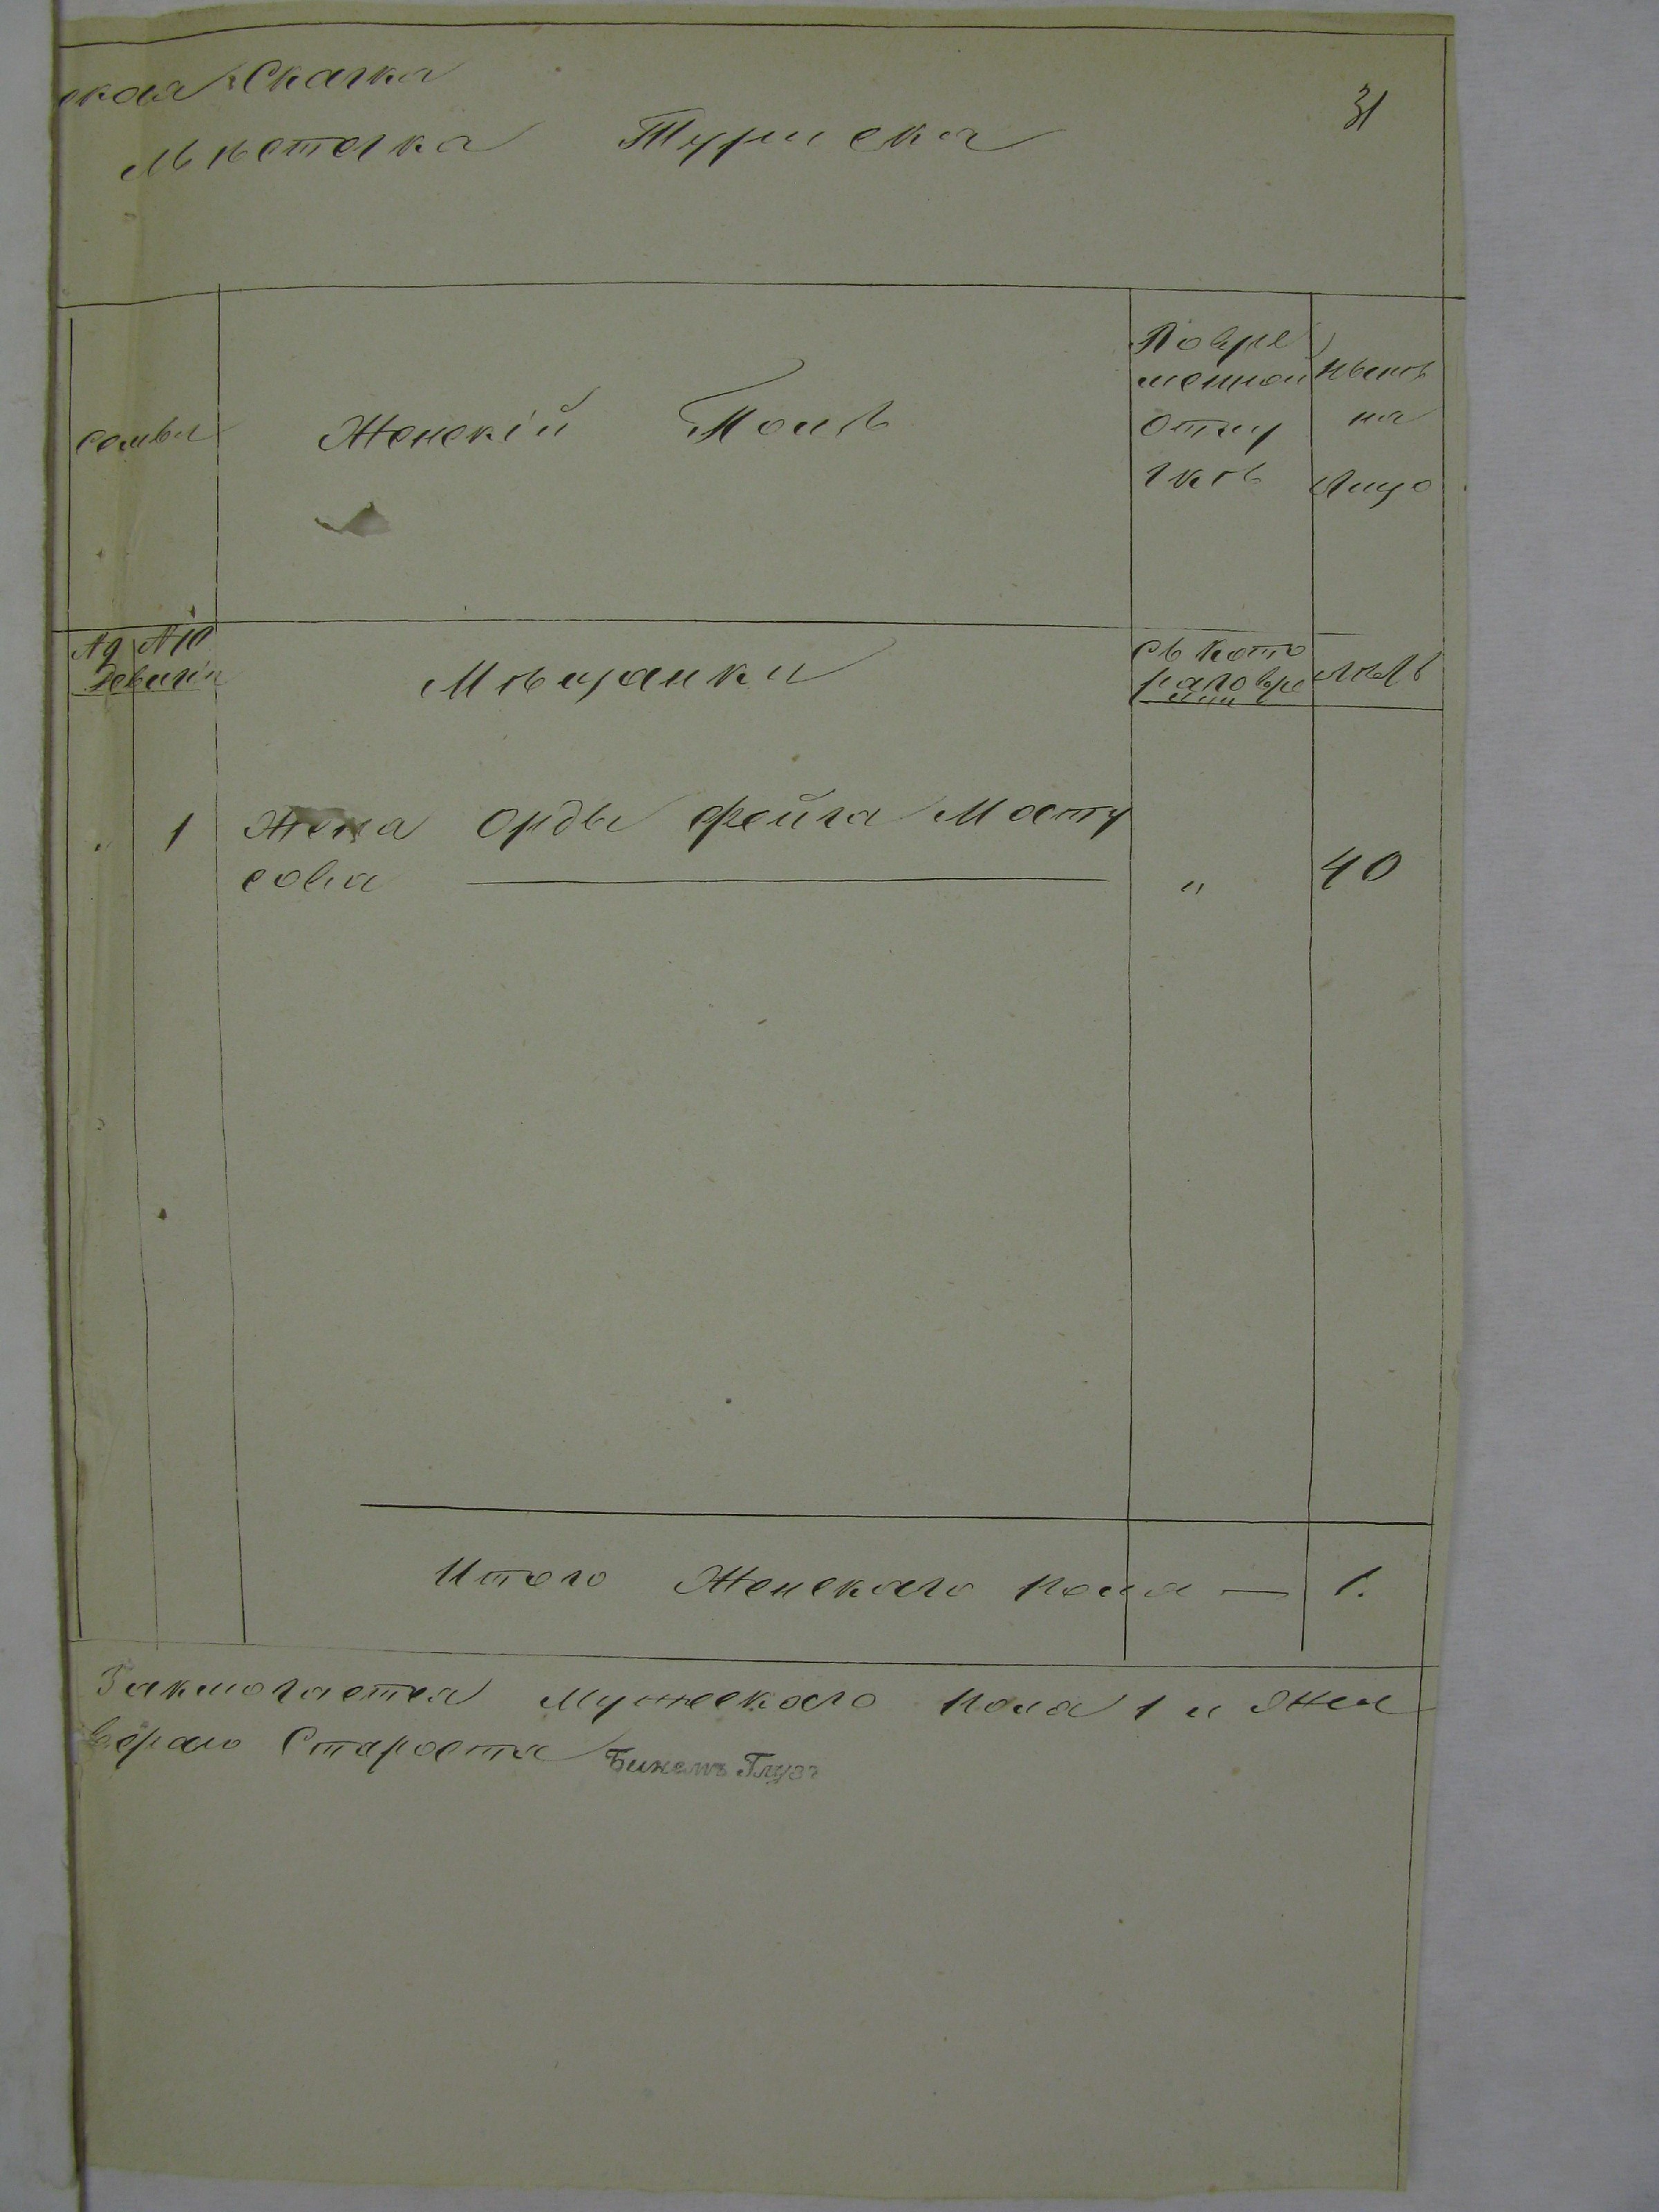 ская Сказка
31
Мѣстечка Турiиска
семьи
Женскiй Полъ
Повре
менной
Отлу
чкѣ
Нынѣ
на
Лицо
№9 №10
Ревизiи
Мѣщанки
Съ кото
раго вре
мени
Лѣтъ
1 Жена Орды Фейга Мошку
сова " 40
Итого Женскаго пола — 1.
Заключается Мужескаго пола 1 и Жен
Староста Бинемъ Глузъ